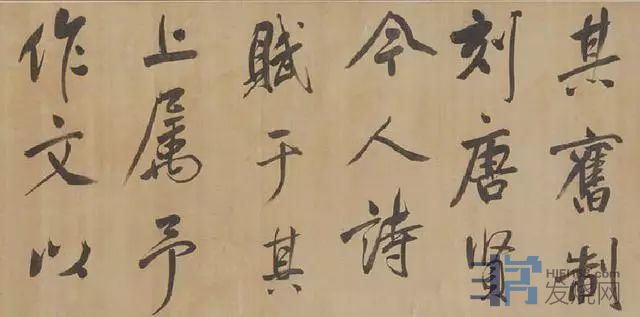 其舊制
刻唐賢
今人詩
賦于其
上属予
作文以
发院网